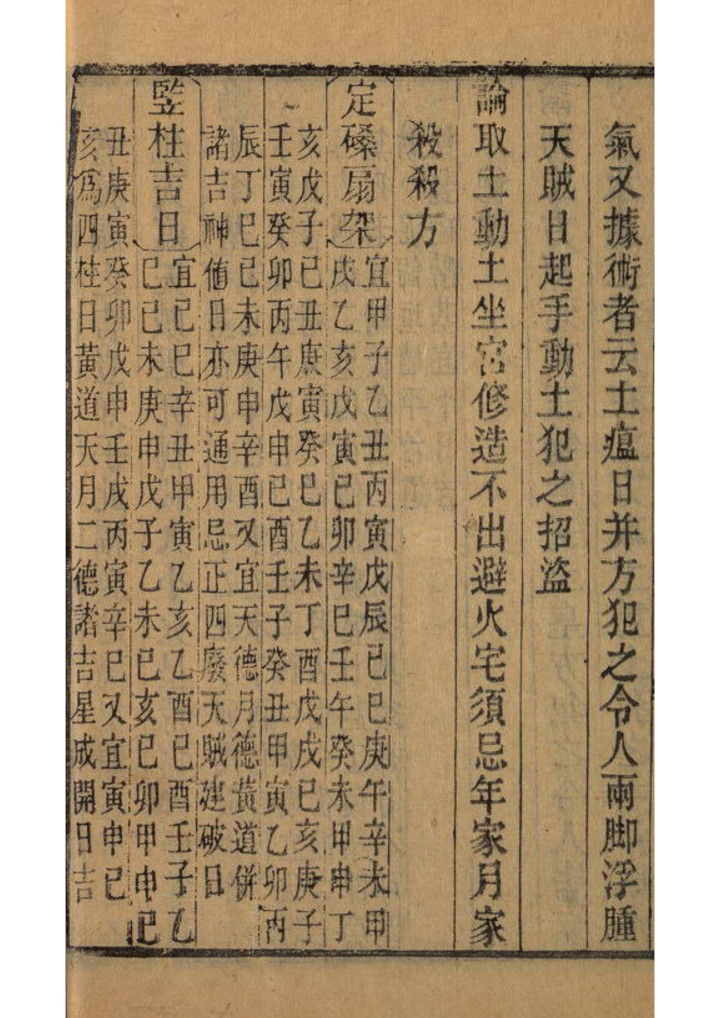 氣又據術者云土瘟日并方犯之令人兩脚浮腫
天賊日起手動土犯之招盜
論取土動土坐宮修造不出避火宅須忌年家月家
殺殺方
定磉扇架
宜甲子乙丑丙寅戊辰己巳庚午辛未甲
戌乙亥戊寅己卯辛巳壬午癸未甲申丁
亥戊子己丑庚寅癸巳乙未丁酉戊戌己亥庚子
壬寅癸卯丙午戊申己酉壬子癸丑甲寅乙卯丙
辰丁巳己未庚申辛酉又宜天德月德黃道併
諸吉神值日亦可通用忌正四廢天賊建破日
竪柱吉日
宜己巳辛丑甲寅乙亥乙酉己酉壬子乙
巳己未庚申戊子乙未己亥己卯甲申己
丑庚寅癸卯戊申壬戌丙寅辛巳又宜寅申巳
亥爲四柱日黃道天月二德諸吉星成開日吉